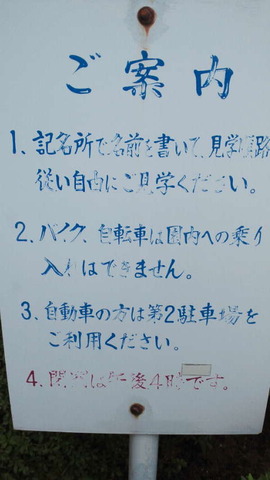 ご案内
1. 記名所で名前を書いて、見学順路
従い自由にご見学ください。
2. バイク、自転車は園内への乗り
入れはできません。
3. 自動車の方は第2駐車場を
ご利用ください。
4. 閉門は午後4時です。